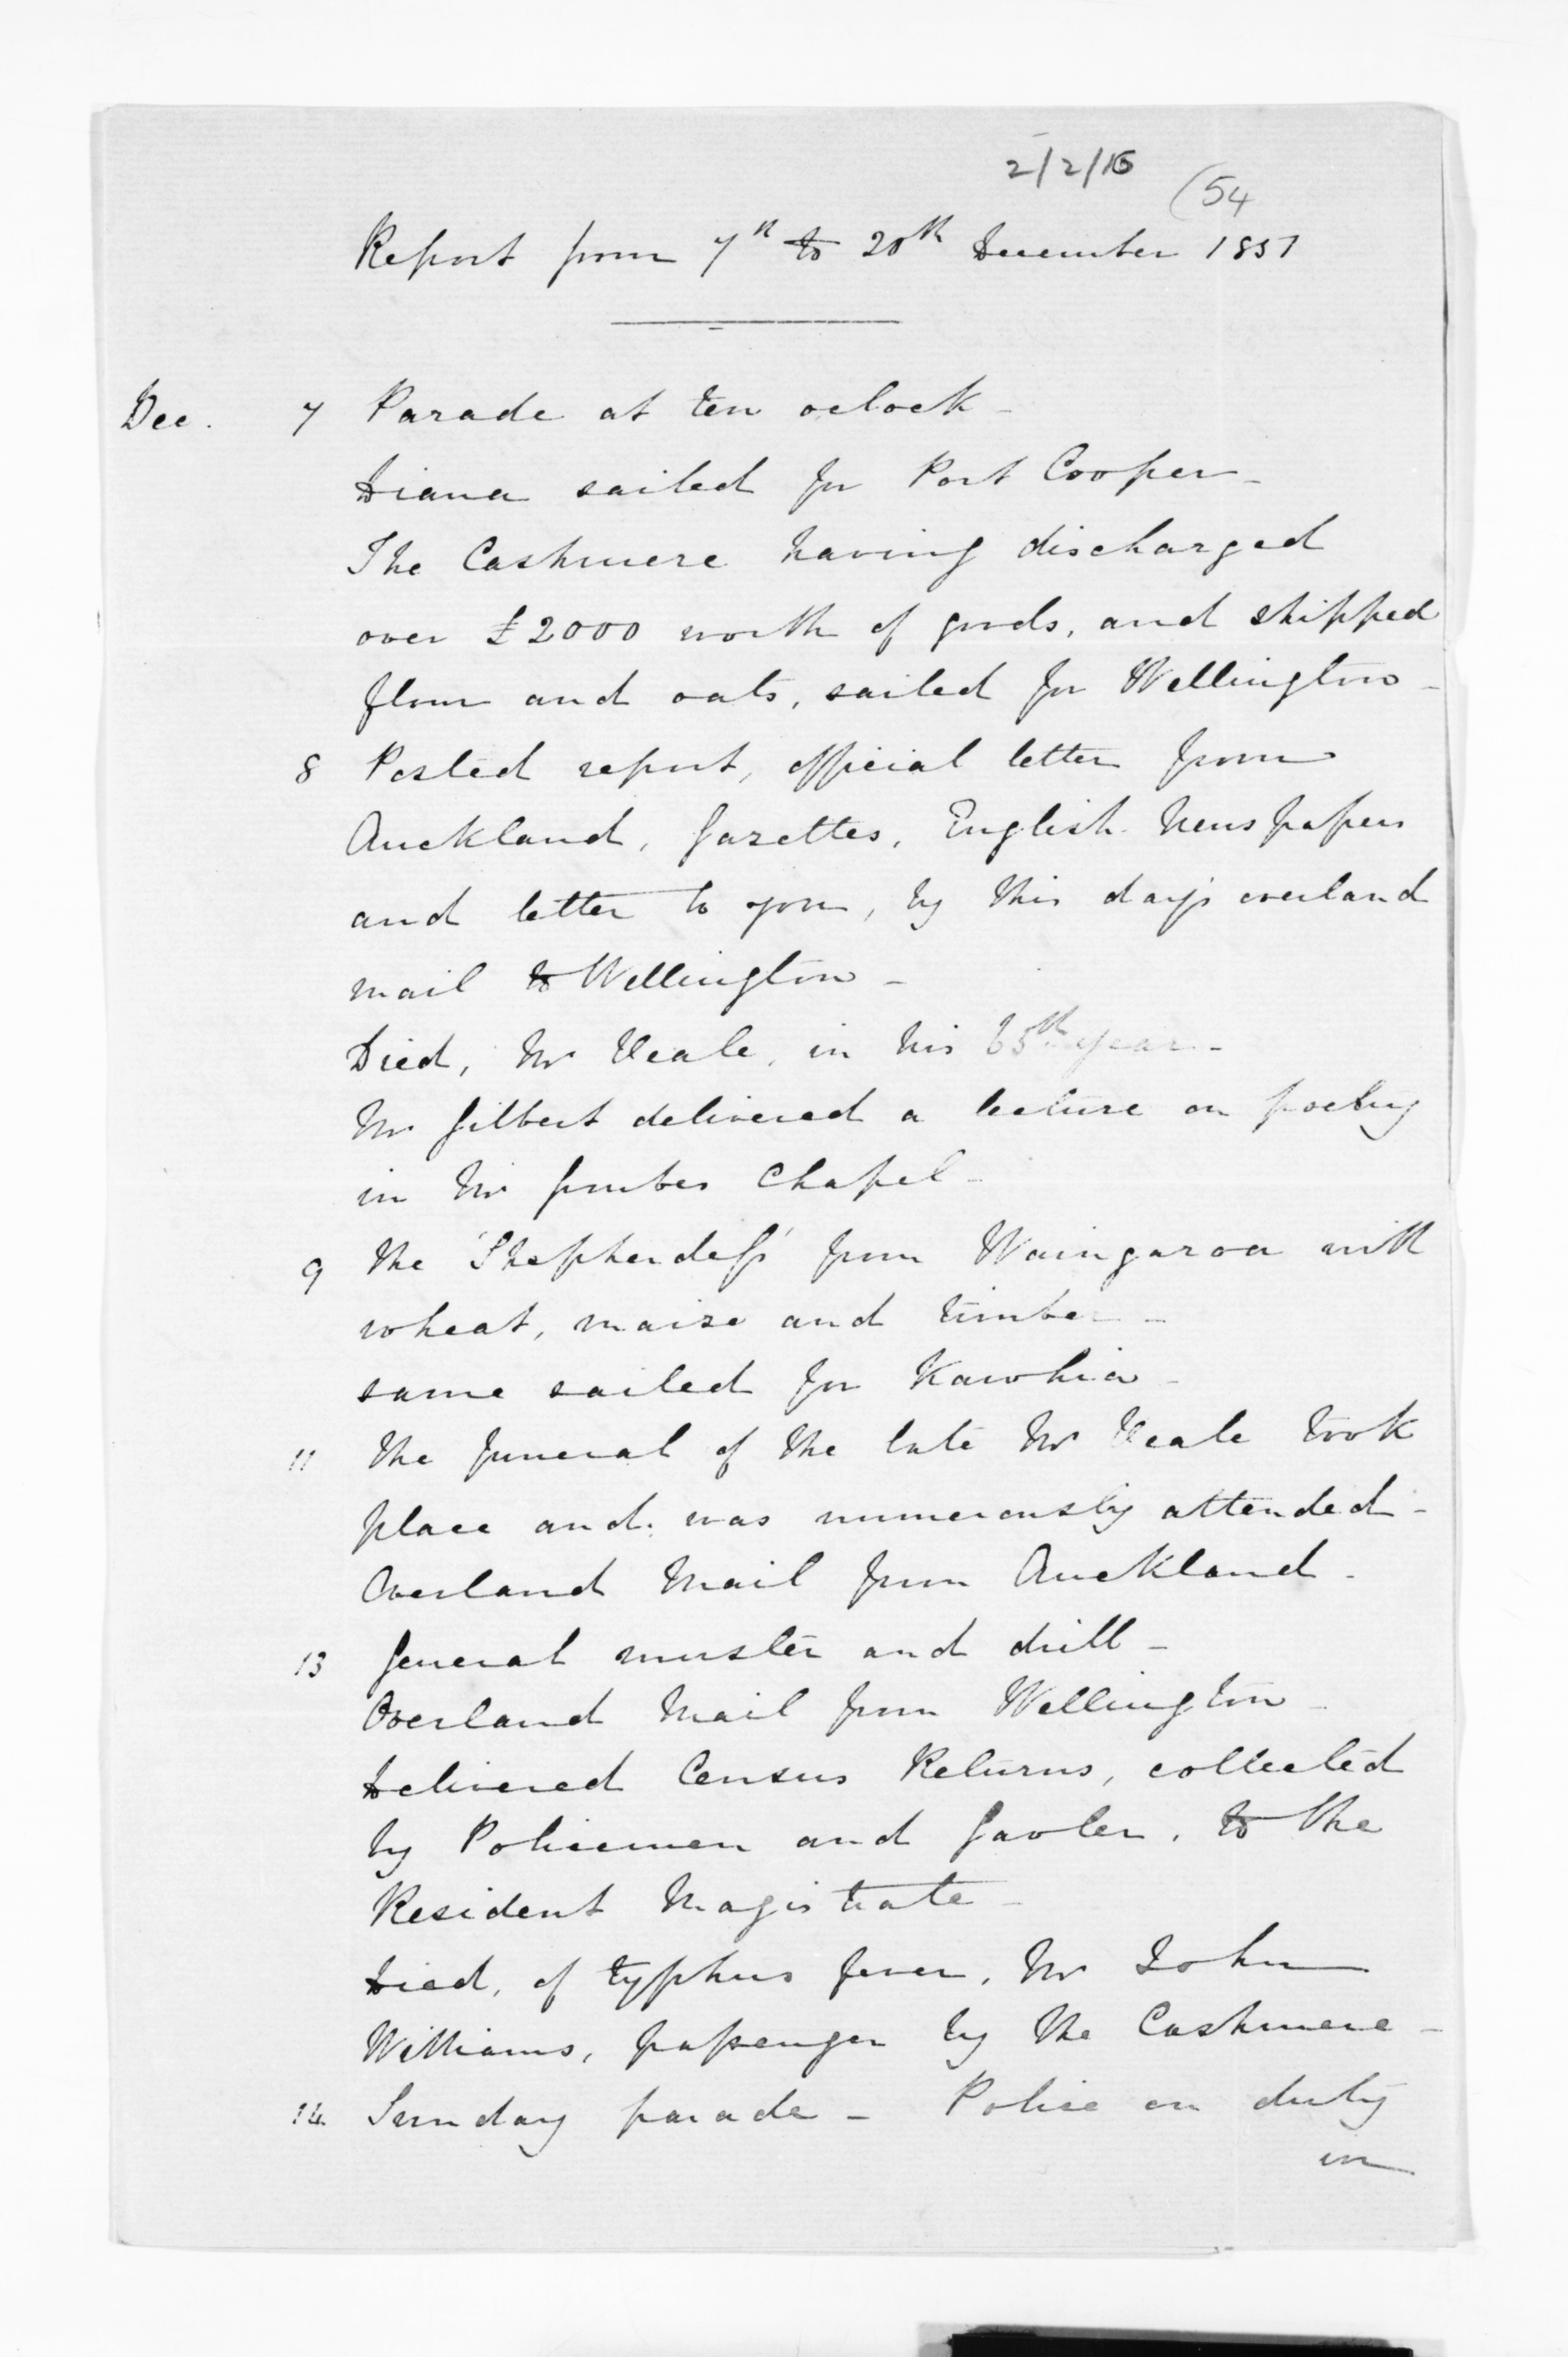 2/2/16
(54
Report from 7th to 20th December 1851
Dec. 7 Parade at ten oclock -
Diana sailed for Port Cooper -
The Cashmere having discharged
over £2000 worth of goods, and shipped
flour and oats, sailed for Wellington -
8 Posted report, official letter from
Auckland, Gazettes, English Newspapers
and letter to you, by this day's overland
mail to Wellington -
Died, Mr Veale, in his 65th year -
Mr Gilbert delivered a lecture on poetry
in Mr Groubes Chapel -
9 The 'Shepherdess' from Waingaroa with
wheat, maize and timber -
same sailed for Kawhia -
11 The funeral of the late Mr Veale took
place and was numerously attended -
Overland Mail from Auckland -
13 General muster and drill -
Overland Mail from Wellington -
Delivered Census Returns, collected
by Policemen and Gaoler, to the
Resident Magistrate -
Died, of typhus fever, Mr John
Williams, passenger by the Cashmere -
14 Sunday parade - Police on duty
in